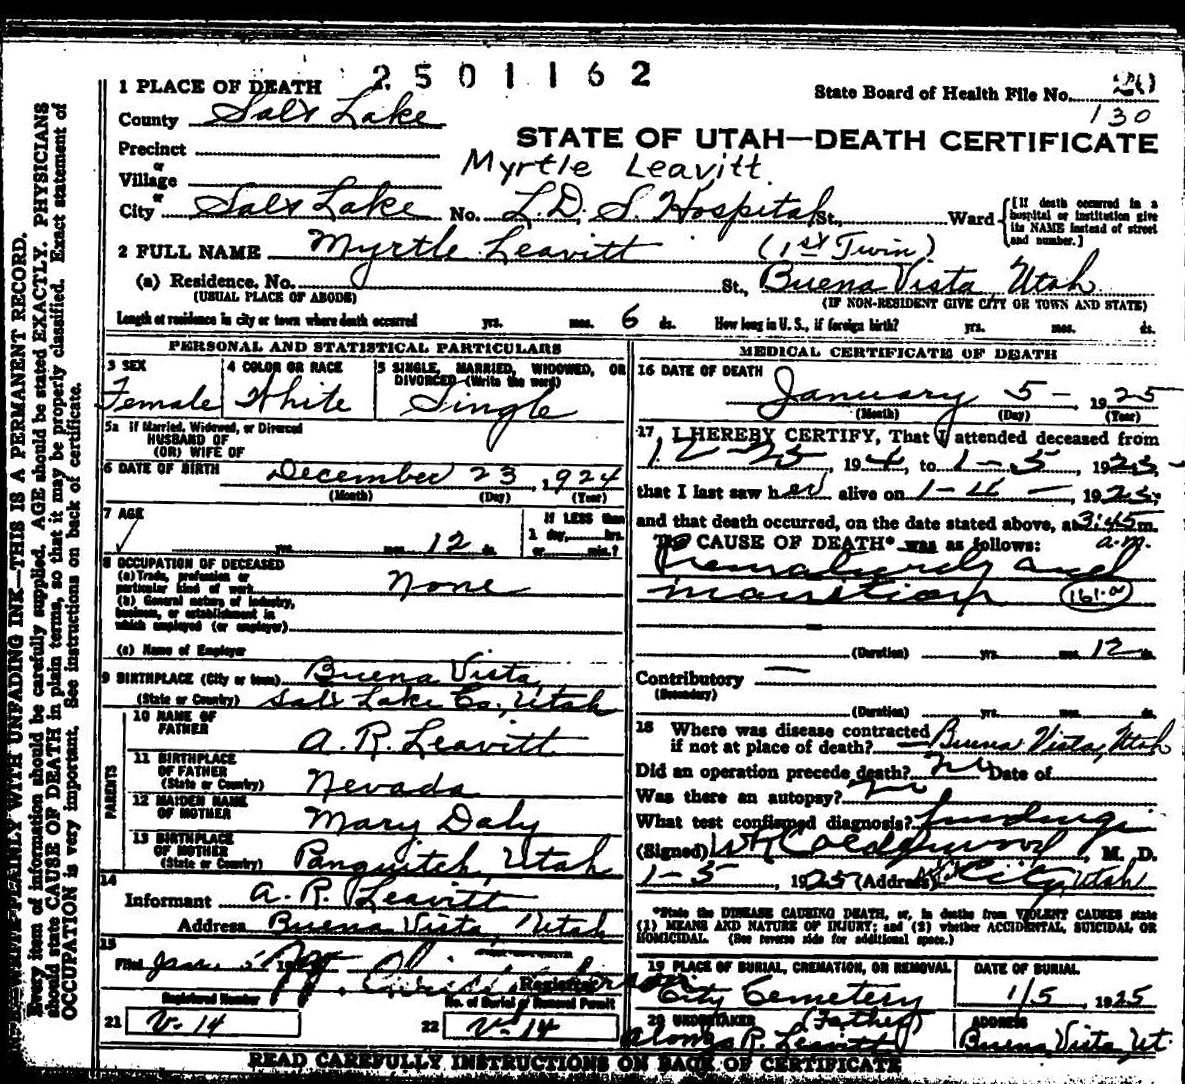 2501162
1 PLACE OF DEATH
State Board of Health File No. 20
130
County Salt Lake
STATE OF UTAH—DEATH CERTIFICATE
Precinct
Myrtle Leavitt
or
Village
or
City Salt Lake No. L.D.S. Hospital St., Ward
[If death occurred in a hospital or institution give its NAME instead of street and number.]
2 FULL NAME Myrtle Leavitt (1st Twin)
(a) Residence. No. St., Buena Vista, Utah
(USUAL PLACE OF ABODE) (IF NON-RESIDENT GIVE CITY OR TOWN AND STATE)
Length of residence in city or town where death occurred yrs. mos. 6 ds. How long in U. S., if foreign birth? yrs. mos. ds.
PERSONAL AND STATISTICAL PARTICULARS
3 SEX
Female
4 COLOR OR RACE
White
5 SINGLE, MARRIED, WIDOWED, OR DIVORCED (Write the word)
Single
5a If Married, Widowed, or Divorced
HUSBAND OF
(OR) WIFE OF
6 DATE OF BIRTH December 23, 1924
(Month) (Day) (Year)
7 AGE
yrs. mos. 12 ds.
If LESS than
1 day, hrs.
or min.?
8 OCCUPATION OF DECEASED
(a) Trade, profession or
particular kind of work None
(b) General nature of industry,
business, or establishment in
which employed (or employer)
(c) Name of Employer
9 BIRTHPLACE (City or town) Buena Vista
(State or Country) Salt Lake Co., Utah
PARENTS
10 NAME OF
FATHER A. R. Leavitt
11 BIRTHPLACE
OF FATHER
(State or Country) Nevada
12 MAIDEN NAME
OF MOTHER Mary Daly
13 BIRTHPLACE
OF MOTHER
(State or Country) Panguitch, Utah
14
Informant A. R. Leavitt
Address Buena Vista, Utah
15
Filed Jan. 5
Registrar
Registered Number
No. of Burial or Removal Permit
21 V-14 22 V-14
MEDICAL CERTIFICATE OF DEATH
16 DATE OF DEATH
January 5 - , 1925
(Month) (Day) (Year)
17 I HEREBY CERTIFY, That I attended deceased from
12-25, 1924, to 1-5, 1925,
that I last saw her alive on 1-4-, 1925,
and that death occurred, on the date stated above, at 3:45 m.
a.m.
The CAUSE OF DEATH* was as follows:
Prematurely and
inanition (161.a)
(Duration) yrs. mos. 12 ds.
Contributory —
(Secondary)
(Duration) yrs. mos. ds.
18 Where was disease contracted
if not at place of death? — Buena Vista, Utah
Did an operation precede death? no Date of
Was there an autopsy? no
What test confirmed diagnosis? findings
(Signed) , M. D.
1-5, 1925 (Address) City, Utah
*State the DISEASE CAUSING DEATH, or, in deaths from VIOLENT CAUSES state
(1) MEANS AND NATURE OF INJURY; and (2) whether ACCIDENTAL, SUICIDAL OR
HOMICIDAL. (See reverse side for additional space.)
19 PLACE OF BURIAL, CREMATION, OR REMOVAL
City Cemetery
DATE OF BURIAL
1/5, 1925
20 UNDERTAKER (Father)
Alonzo R. Leavitt
ADDRESS
Buena Vista, Ut.
READ CAREFULLY INSTRUCTIONS ON BACK OF CERTIFICATE
WRITE PLAINLY WITH UNFADING INK—THIS IS A PERMANENT RECORD.
Every item of information should be carefully supplied. AGE should be stated EXACTLY. PHYSICIANS
should state CAUSE OF DEATH in plain terms, so that it may be properly classified. Exact statement of
OCCUPATION is very important. See instructions on back of certificate.